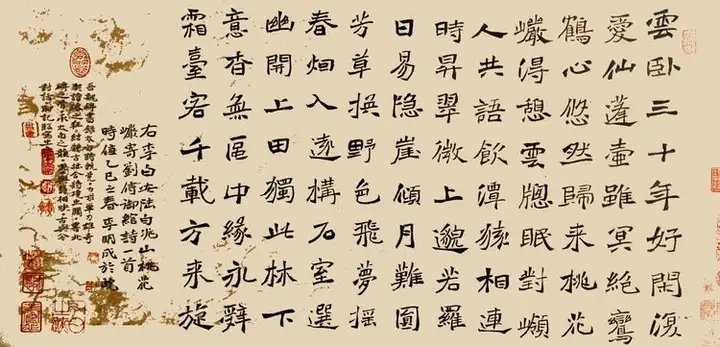 雲卧三十年好閑復
愛仙蓬壺雖冥絕鸞
鶴心悠然歸来桃花
巗得憩雲牕眠對嶺
人共語飲潭猿相連
時昇翠微上邈若羅
日易隐崖傾月難圓
芳草换野色飛夢摇
春烟入遠構石室選
幽開上田獨此林下
意杳無區中緣永辭
霜臺客千載方来旋
右李白安陆白兆山桃花
巗寄劉侍御綰詩一首
時值乙巳之春李明成於